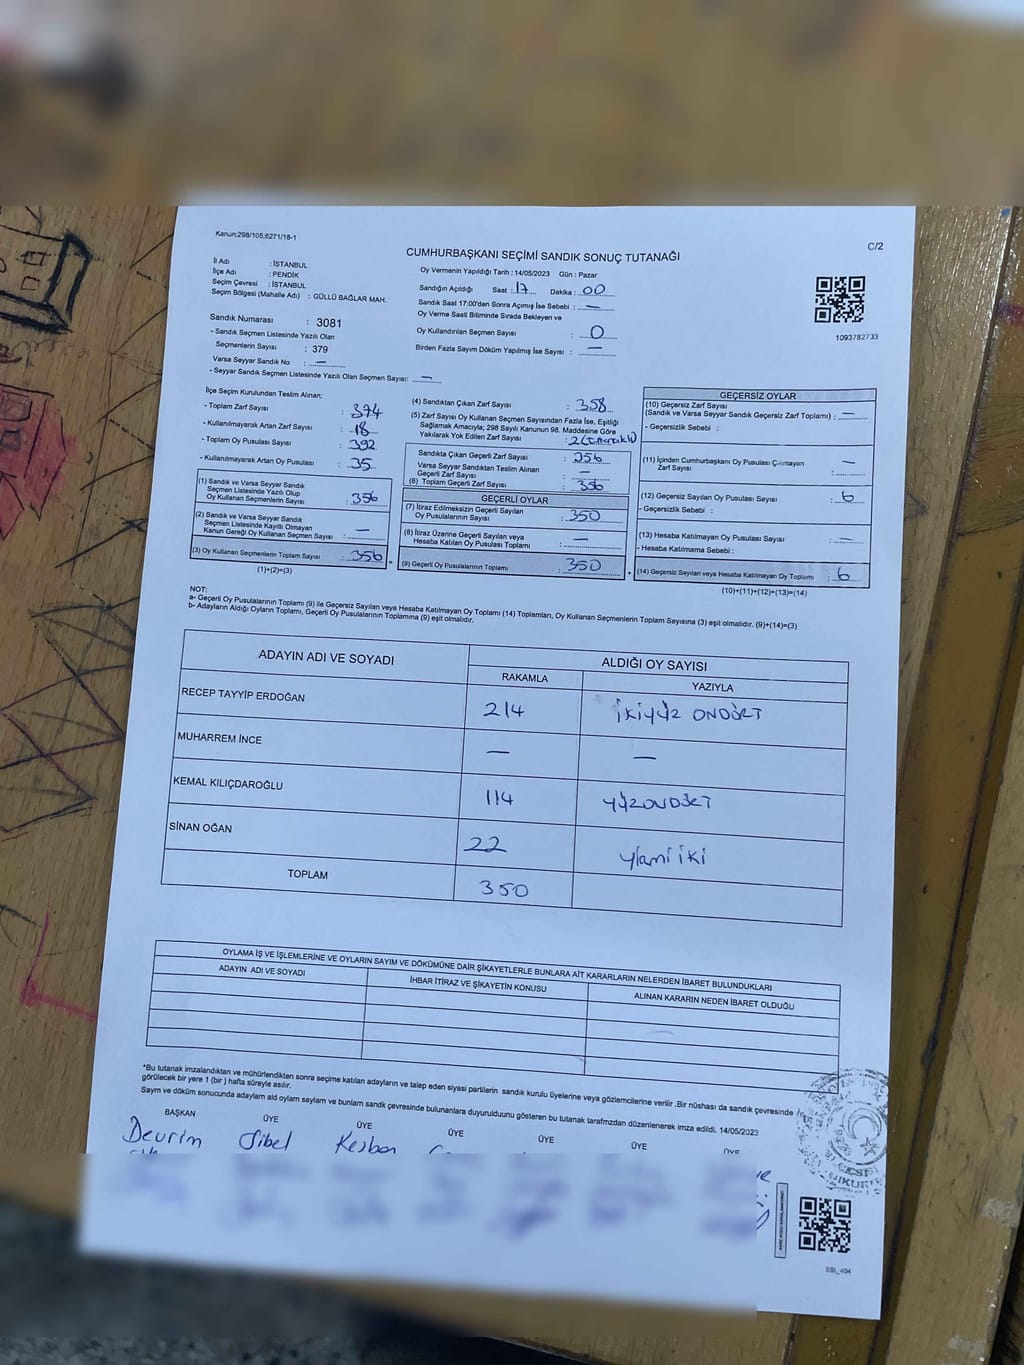 Kanun;298/105;6271/18-1
C/2
CUMHURBAŞKANI SEÇİMİ SANDIK SONUÇ TUTANAĞI
İl Adı : İSTANBUL
İlçe Adı : PENDİK
Seçim Çevresi : İSTANBUL
Seçim Bölgesi (Mahalle Adı) : GÜLLÜ BAĞLAR MAH.
Oy Vermenin Yapıldığı Tarih : 14/05/2023 Gün : Pazar
Sandığın Açıldığı Saat : 17 Dakika : 00
Sandık Saat 17:00'den Sonra Açımış İse Sebebi : —
Oy Verme Saati Bitiminde Sırada Bekleyen ve
Oy Kullandırılan Seçmen Sayısı : 0
Birden Fazla Sayım Döküm Yapılmış İse Sayısı : —
1093782733
Sandık Numarası : 3081
- Sandık Seçmen Listesinde Yazılı Olan
Seçmenlerin Sayısı : 379
Varsa Seyyar Sandık No : —
- Seyyar Sandık Seçmen Listesinde Yazılı Olan Seçmen Sayısı: —
İlçe Seçim Kurulundan Teslim Alınan;
- Toplam Zarf Sayısı : 374
- Kullanılmayarak Artan Zarf Sayısı : 18
- Toplam Oy Pusulası Sayısı : 392
- Kullanılmayarak Artan Oy Pusulası : 35
(1) Sandık ve Varsa Seyyar Sandık
Seçmen Listesinde Yazılı Olup
Oy Kullanan Seçmenlerin Sayısı : 356
(2) Sandık ve Varsa Seyyar Sandık
Seçmen Listesinde Kayıtlı Olmayan
Kanun Gereği Oy Kullanan Seçmen Sayısı : —
(3) Oy Kullanan Seçmenlerin Toplam Sayısı : 356
(1)+(2)=(3)
(4) Sandıktan Çıkan Zarf Sayısı : 358
(5) Zarf Sayısı Oy Kullanan Seçmen Sayısından Fazla İse, Eşitliği
Sağlamak Amacıyla; 298 Sayılı Kanunun 98. Maddesine Göre
Yakılarak Yok Edilen Zarf Sayısı : 2
Sandıkta Çıkan Geçerli Zarf Sayısı : 356
Varsa Seyyar Sandıktan Teslim Alınan
Geçerli Zarf Sayısı : —
(6) Toplam Geçerli Zarf Sayısı : 356
GEÇERLİ OYLAR
(7) İtiraz Edilmeksizin Geçerli Sayılan
Oy Pusulalarının Sayısı : 350
(8) İtiraz Üzerine Geçerli Sayılan veya
Hesaba Katılan Oy Pusulası Toplamı : —
(9) Geçerli Oy Pusulalarının Toplamı : 350
GEÇERSİZ OYLAR
(10) Geçersiz Zarf Sayısı
(Sandık ve Varsa Seyyar Sandık Geçersiz Zarf Toplamı) : —
- Geçersizlik Sebebi :
(11) İçinden Cumhurbaşkanı Oy Pusulası Çıkmayan
Zarf Sayısı : —
(12) Geçersiz Sayılan Oy Pusulası Sayısı : 6
- Geçersizlik Sebebi :
(13) Hesaba Katılmayan Oy Pusulası Sayısı : —
- Hesaba Katılmama Sebebi :
(14) Geçersiz Sayılan veya Hesaba Katılmayan Oy Toplamı : 6
(10)+(11)+(12)+(13)=(14)
NOT:
a- Geçerli Oy Pusulalarının Toplamı (9) ile Geçersiz Sayılan veya Hesaba Katılmayan Oy Toplamı (14) Toplamları, Oy Kullanan Seçmenlerin Toplam Sayısına (3) eşit olmalıdır. (9)+(14)=(3)
b- Adayların Aldığı Oyların Toplamı, Geçerli Oy Pusulalarının Toplamına (9) eşit olmalıdır.
ADAYIN ADI VE SOYADI
ALDIĞI OY SAYISI
RAKAMLA YAZIYLA
RECEP TAYYİP ERDOĞAN 214 İKİYÜZ ONDÖRT
MUHARREM İNCE — —
KEMAL KILIÇDAROĞLU 114 YÜZONDÖRT
SİNAN OĞAN 22 yirmi iki
TOPLAM 350
OYLAMA İŞ VE İŞLEMLERİNE VE OYLARIN SAYIM VE DÖKÜMÜNE DAİR ŞİKAYETLERLE BUNLARA AİT KARARLARIN NELERDEN İBARET BULUNDUKLARI
ADAYIN ADI VE SOYADI İHBAR İTİRAZ VE ŞİKAYETİN KONUSU ALINAN KARARIN NEDEN İBARET OLDUĞU
*Bu tutanak imzalandıktan ve mühürlendikten sonra seçime katılan adayların ve talep eden siyasi partilerin sandık kurulu üyelerine veya gözlemcilerine verilir .Bir nüshası da sandık çevresinde
görülecek bir yere 1 (bir ) hafta süreyle asılır.
Sayım ve döküm sonucunda adayların aldığı oyların sayılarını ve bunların sandık çevresinde bulunanlara duyurulduğunu gösteren bu tutanak tarafımızdan düzenlenerek imza edildi. 14/05/2023
BAŞKAN ÜYE ÜYE ÜYE ÜYE ÜYE ÜYE
Devrim Sibel Kezban
SSİ_404